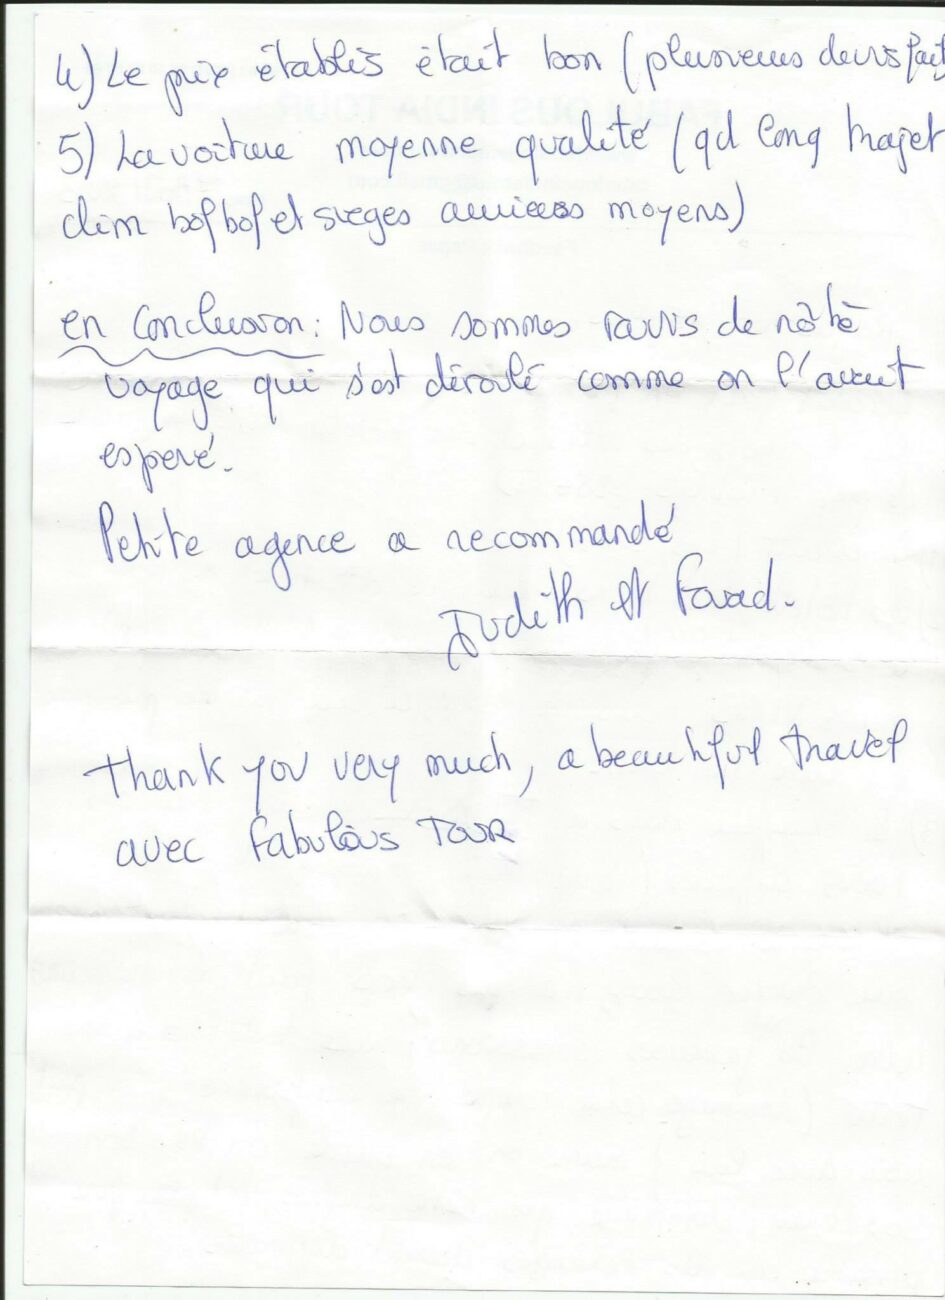 4) Le prix établis était bon (plusieurs devis fait
5) La voiture moyenne qualité (qd long trajet
clim bof bof et sieges arrieres moyens)
en Conclusion : Nous sommes ravis de nôtre
voyage qui s'est déroulé comme on l'avait
esperé.
Petite agence a recommandé
Judith et Fouad.
Thank you very much, a beautiful travel
avec Fabulous TOUR